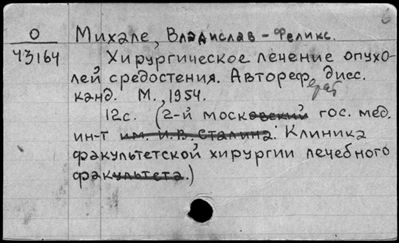 О
43164
Михале, Владислав-Феликс.
Хирургическое лечение опухо-
лей средостения. Автореф. дисс.
канд. М., 1954.
12с. (2-й московский гос. мед.
ин-т им. И.В. Сталина. Клиника
факультетской хирургии лечебного
факультета.)